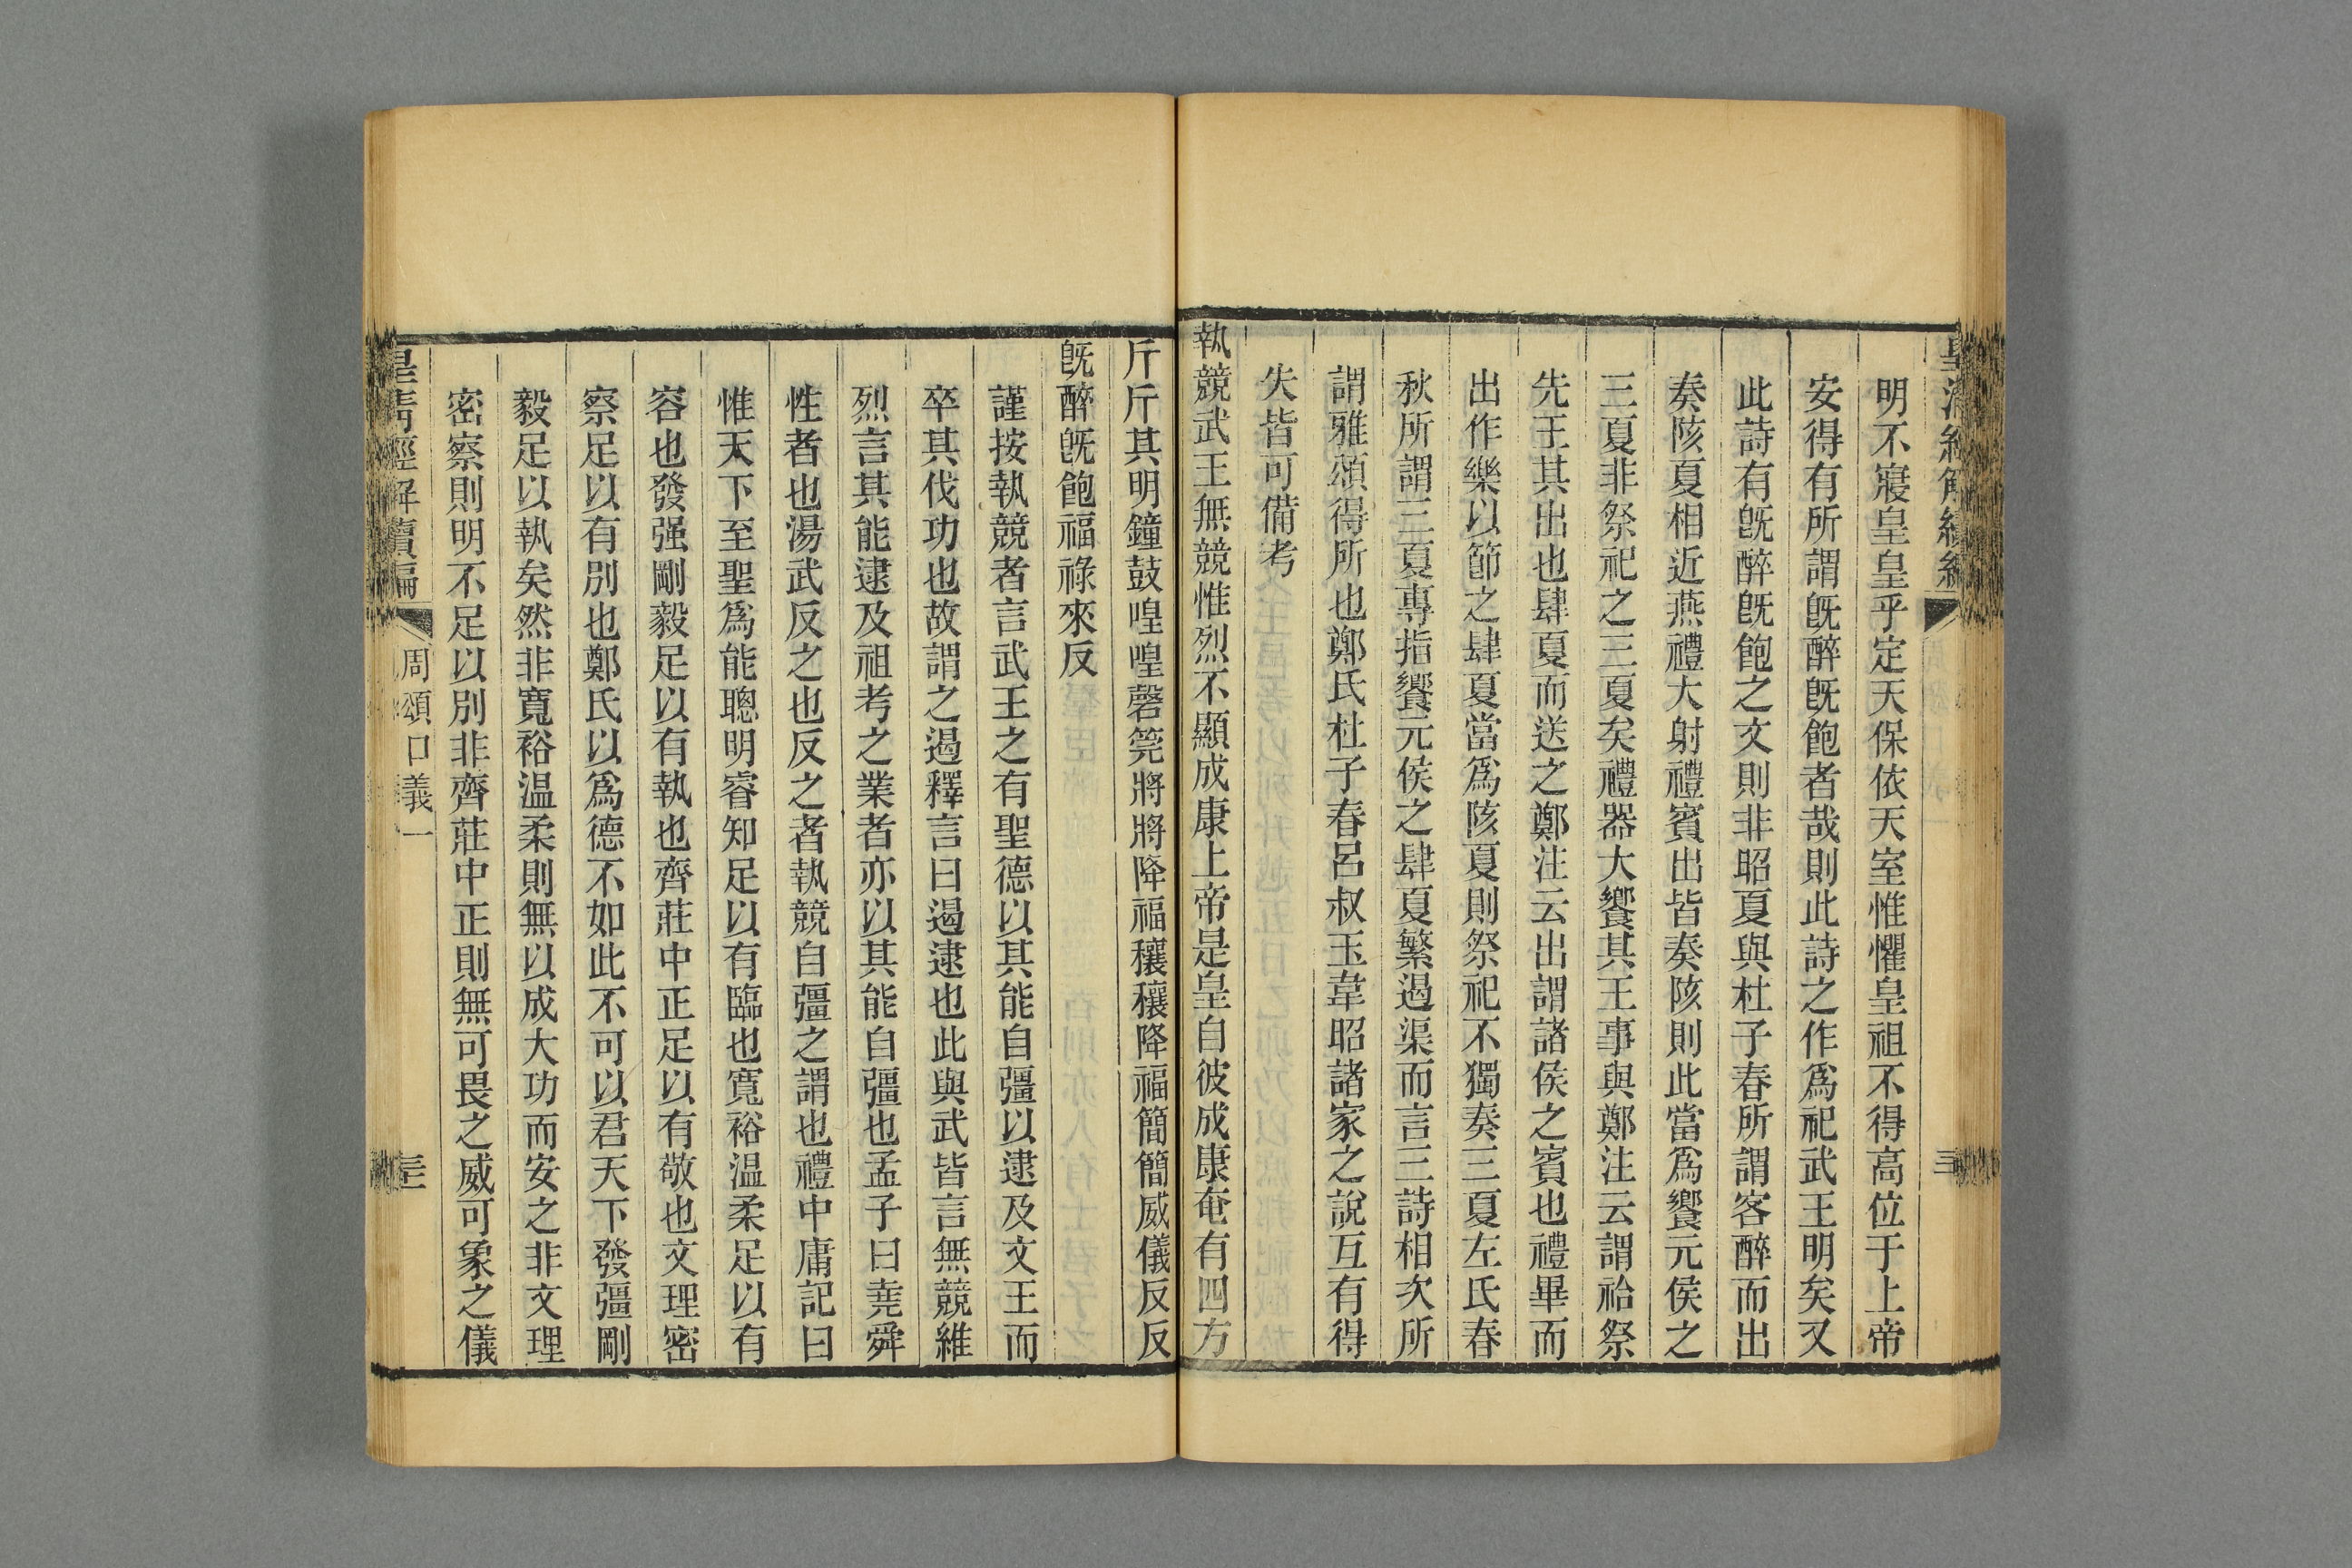 明不寢皇皇乎定天保依天室惟懼皇祖不得高位于上帝
安得有所謂旣醉旣飽者哉則此詩之作爲祀武王明矣又
此詩有旣醉旣飽之文則非昭夏與杜子春所謂客醉而出
奏陔夏相近燕禮大射禮賓出皆奏陔則此當爲饗元侯之
三夏非祭祀之三夏矣禮器大饗其王事與鄭注云謂祫祭
先王其出也肆夏而送之鄭注云出謂諸侯之賓也禮畢而
出作樂以節之肆夏當爲陔夏則祭祀不獨奏三夏左氏春
秋所謂三夏專指饗元侯之肆夏繁遏渠而言三詩相次所
謂雅頌得所也鄭氏杜子春呂叔玉韋昭諸家之說互有得
失皆可備考
執競武王無競惟烈不顯成康上帝是皇自彼成康奄有四方
斤斤其明鐘鼓喤喤磬筦將將降福穰穰降福簡簡威儀反反
旣醉旣飽福祿來反
謹按執競者言武王之有聖德以其能自彊以逮及文王而
卒其伐功也故謂之遏釋言曰遏逮也此與武皆言無競維
烈言其能逮及祖考之業者亦以其能自彊也孟子曰堯舜
性者也湯武反之也反之者執競自彊之謂也禮中庸記曰
惟天下至聖爲能聰明睿知足以有臨也寬裕温柔足以有
容也發强剛毅足以有執也齊莊中正足以有敬也文理密
察足以有別也鄭氏以爲德不如此不可以君天下發彊剛
毅足以執矣然非寬裕温柔則無以成大功而安之非文理
密察則明不足以別非齊莊中正則無可畏之威可象之儀
皇清經解續編
周頌口義一